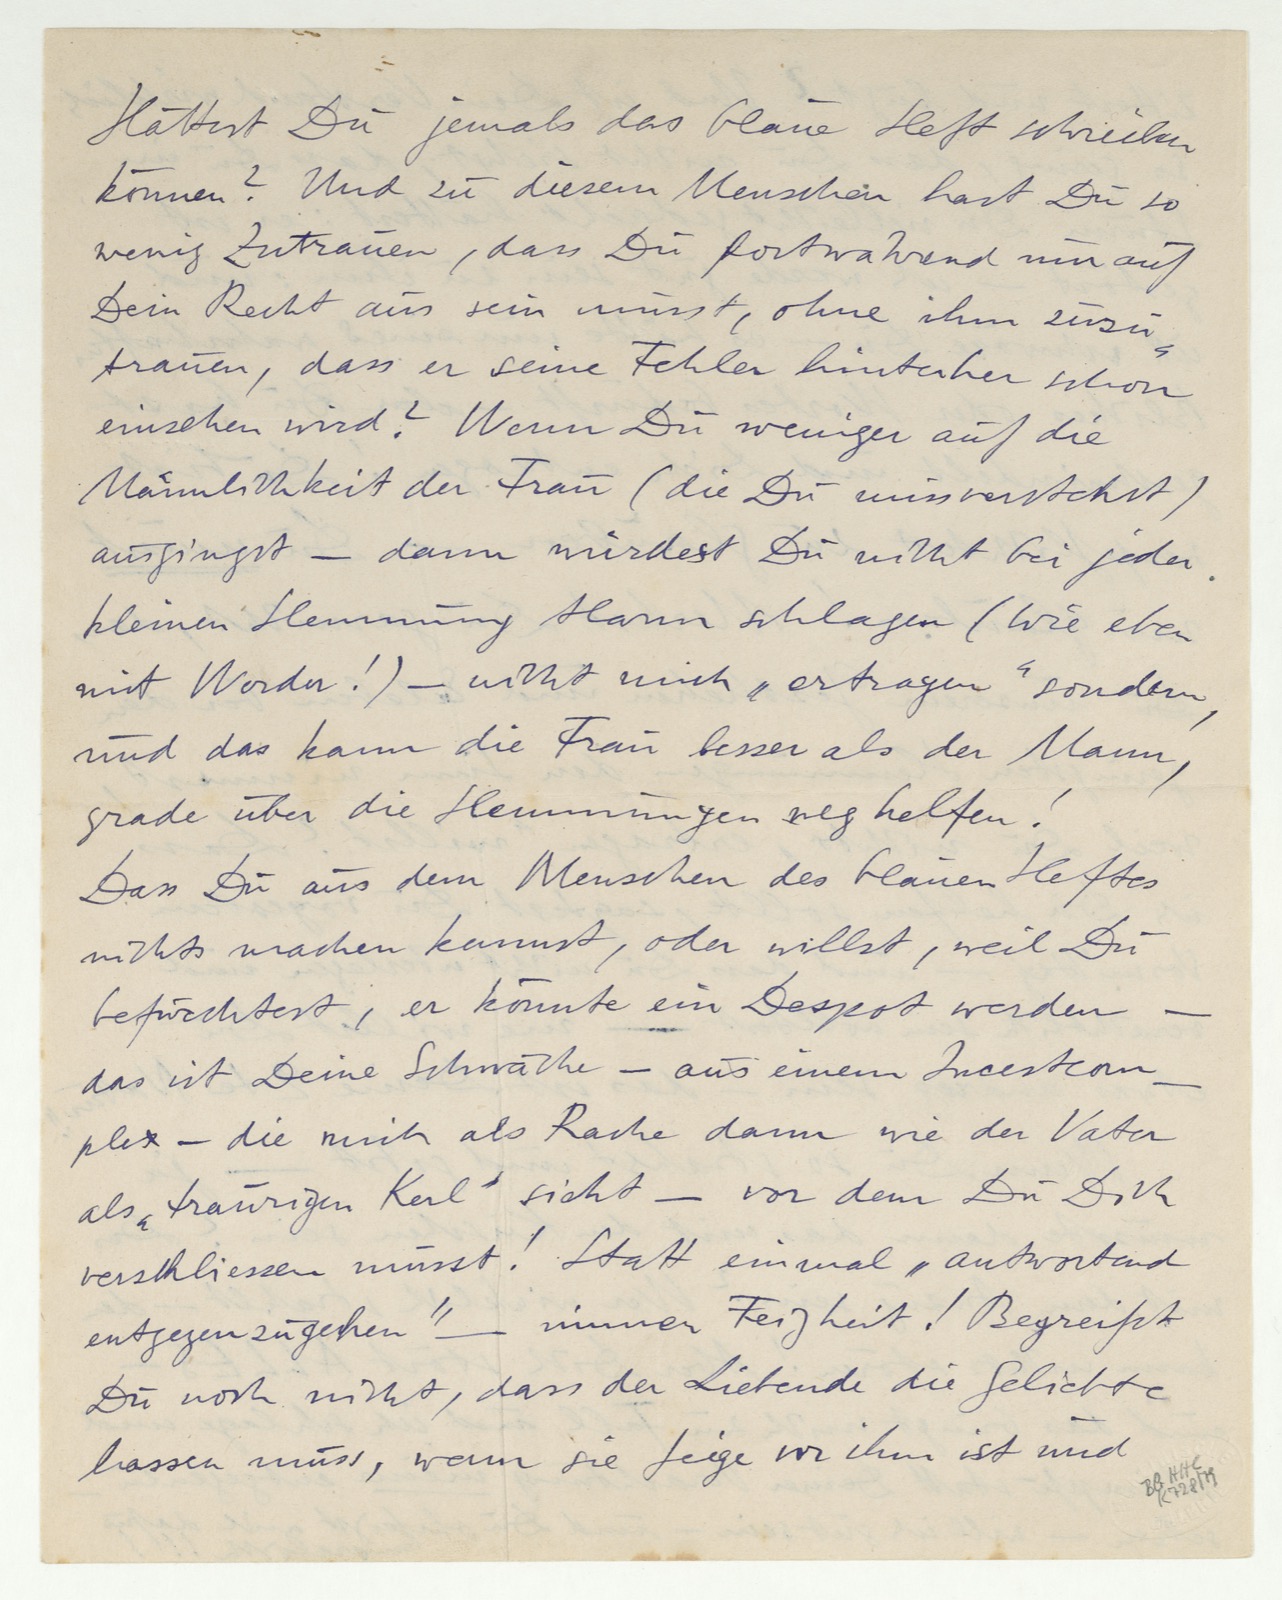 Hättest Du jemals das blaue Heft schreiben
können? Und zu diesem Menschen hast Du so
wenig Zutrauen, dass Du fortwährend nur auf
Dein Recht aus sein musst, ohne ihm zuzu-
trauen, dass er seine Fehler hinterher schon
einsehen wird? Wenn Du weniger auf die
Männlichkeit der Frau (die Du missverstehst)
ausgingst — dann würdest Du nicht bei jeder
kleinen Hemmung Harm schlagen (wie eben
mit Worder!) — nicht mich „ertragen“ sondern,
und das kann die Frau besser als der Mann,
grade über die Hemmungen weg helfen!
Dass Du aus dem Menschen des blauen Heftes
nichts machen kannst, oder willst, weil Du
befürchtest, er könnte ein Despot werden —
das ist Deine Schwäche — aus einem Incestcom-
plex — die mich als Rache dann wie der Vater
als „traurigen Kerl“ sieht — vor dem Du Dich
verschliessen musst! Statt einmal „antwortend
entgegenzugehen“ — immer Feigheit! Begreifst
Du noch nicht, dass der Liebende die Geliebte
hassen muss, wenn sie feige vor ihm ist und
BG HHC
K 728/79